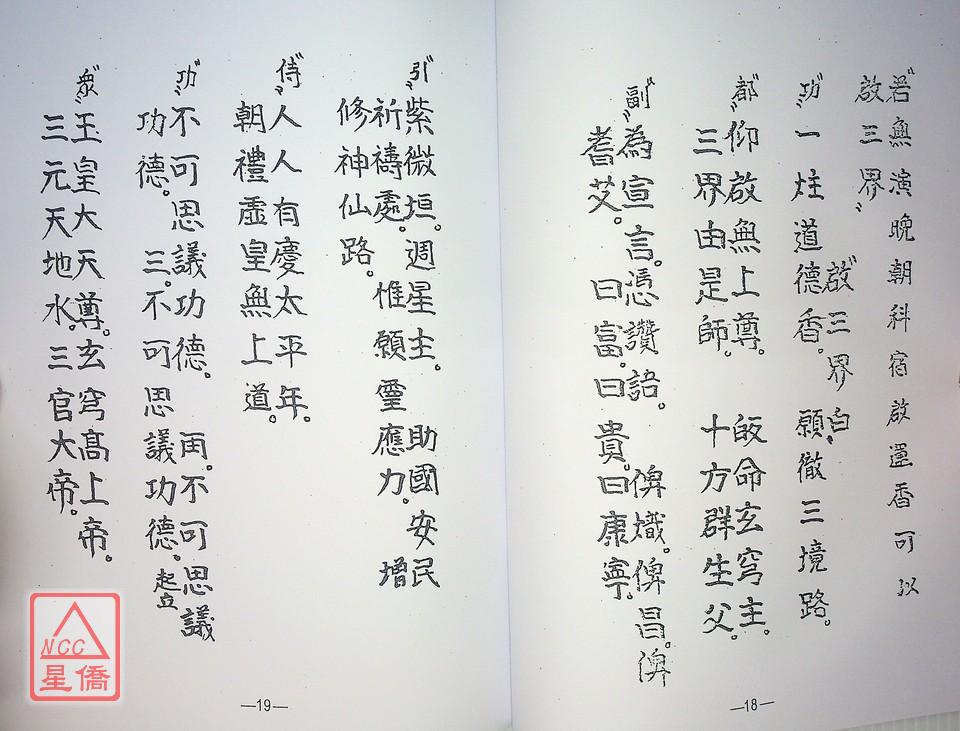 若無演晚朝科宿啟還香可以
啟三界
啟三界白
功 一炷道德香。願徹三境路。
都 仰啟無上尊。皈命玄穹主。
三界由是師。十方群生父。
副 為宣言。憑讚詻。俾熾。俾昌。俾
耆艾。曰富。曰貴。曰康寧。
—18—
引 紫微垣。週星主。助國安民
祈禱處。惟願靈應力。增
修神仙路。
侍 人人有慶太平年。
朝禮虛皇無上道。
功 不可思議功德。再。不可思議
功德。三。不可思議功德。起立
眾 玉皇大天尊。玄穹高上帝。
三元天地水。三官大帝。
—19—
NCC
星僑